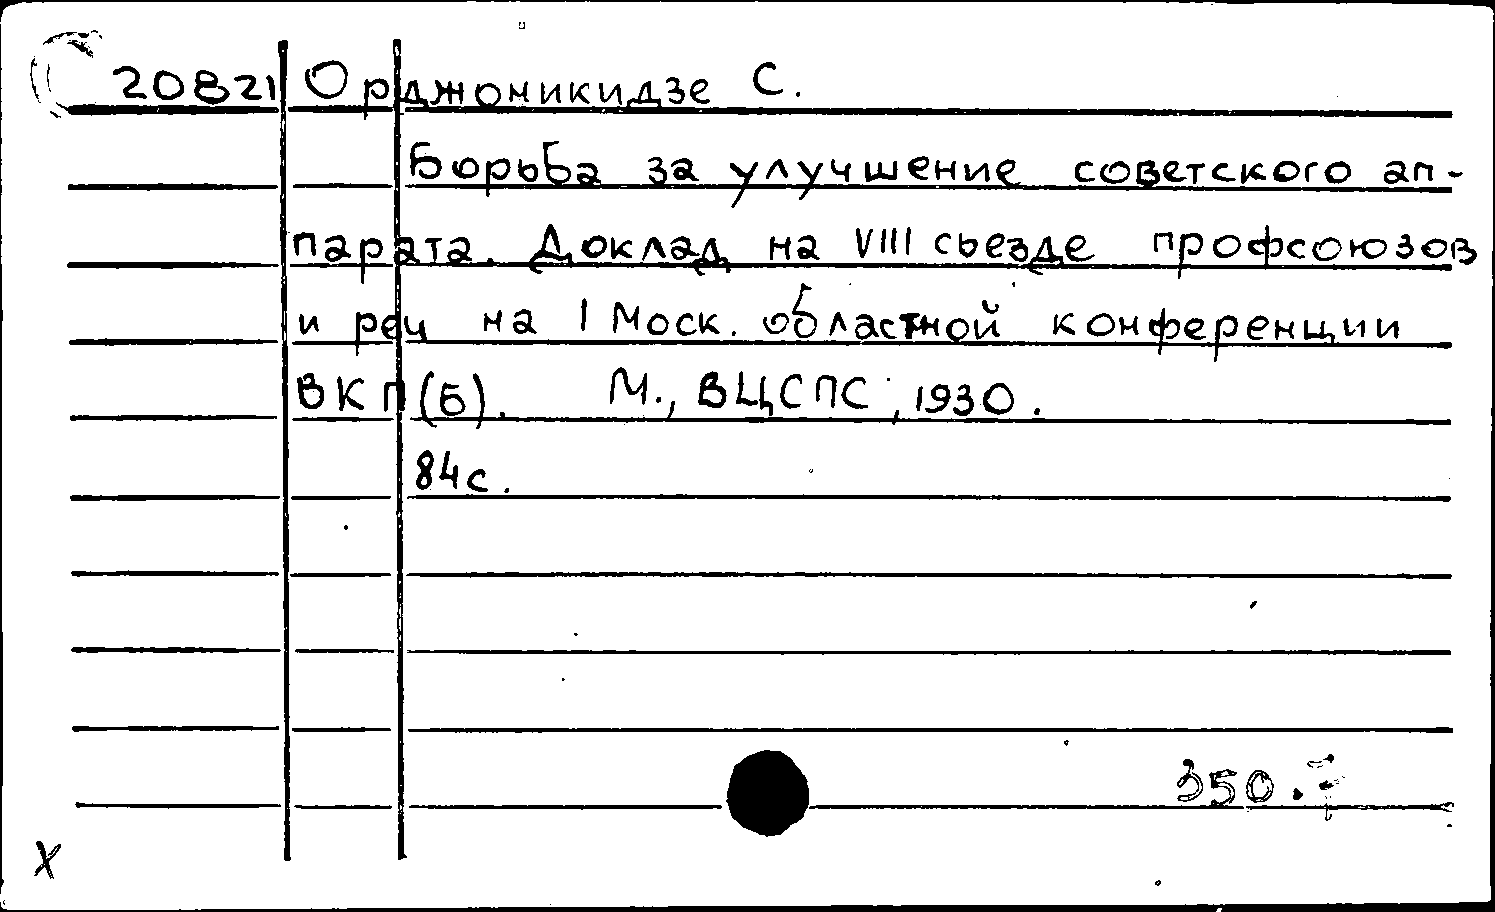 20821 Орджоникидзе С.
Борьба за улучшение советского ап-
парата. Доклад на VIII сьезде профсоюзов
и реч на I Моск. областной конференции
ВКП(б). М., ВЦСПС, 1930.
84с.
350.
х